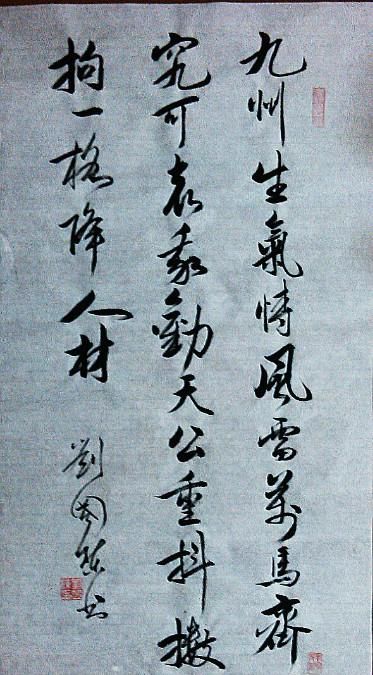 九州生氣恃風雷萬馬齊
究可哀我勸天公重抖擻
拘一格降人材
劉國书